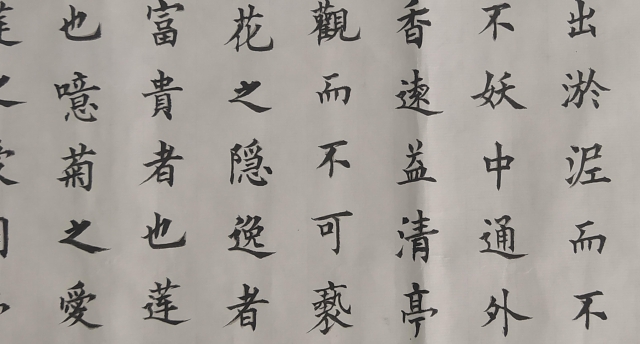 出淤泥而不
不妖中通外
香遠益清亭
觀而不可褻
花之隠逸者
富貴者也莲
也噫菊之愛